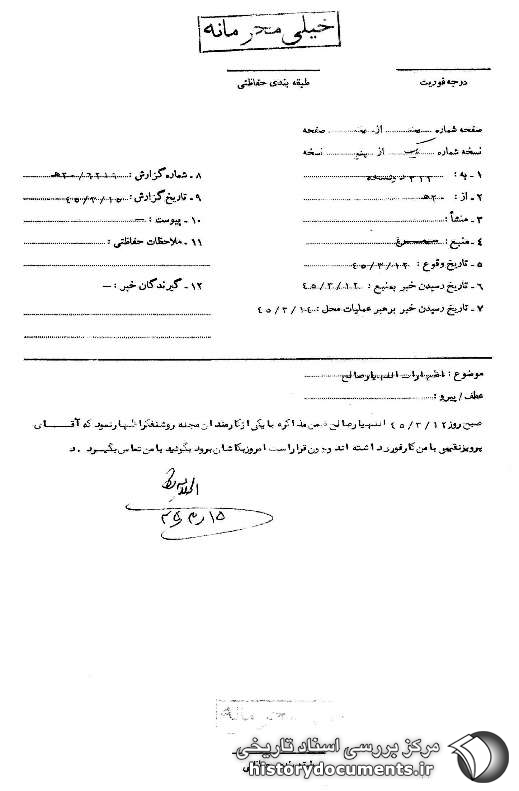 خیلی محرمانه
درجه فوریت
طبقه بندی حفاظتی
صفحه شماره از صفحه
نسخه شماره یک از پنج نسخه
۱ - به : ۳۱۲ ۸ - شماره گزارش : ۶۲۱۱ / ۲۰ه
۲ - از : ۲۰ه ۹ - تاریخ گزارش : ۴۵/۳/۱۵
۳ - منشأ : ۱۰ - پیوست : —
۴ - منبع : ۱۱ - ملاحظات حفاظتی :
۵ - تاریخ وقوع : ۴۵/۳/۱۲
۶ - تاریخ رسیدن خبر بمنبع : ۴۵/۳/۱۲ ۱۲ - گیرندگان خبر : —
۷ - تاریخ رسیدن خبر برهبر عملیات محل : ۴۵/۳/۱۴
موضوع : اظهارات اللهیار صالح
عطف / پیرو :
صبح روز ۴۵/۳/۱۲ اللهیار صالح ضمن مذاکره با یکی از کارمندان مجله روشنفکر اظهار نمود که آقای
پرویز نقیبی با من کار فوری داشته اند و چون قرار است امروز بکاشان برود بگوئید با من تماس بگیرد . د
۱۵ر۳ر۴۵
خیلی محرمانه
طبقه بندی حفاظتی
مرکز بررسی اسناد تاریخی
historydocuments.ir